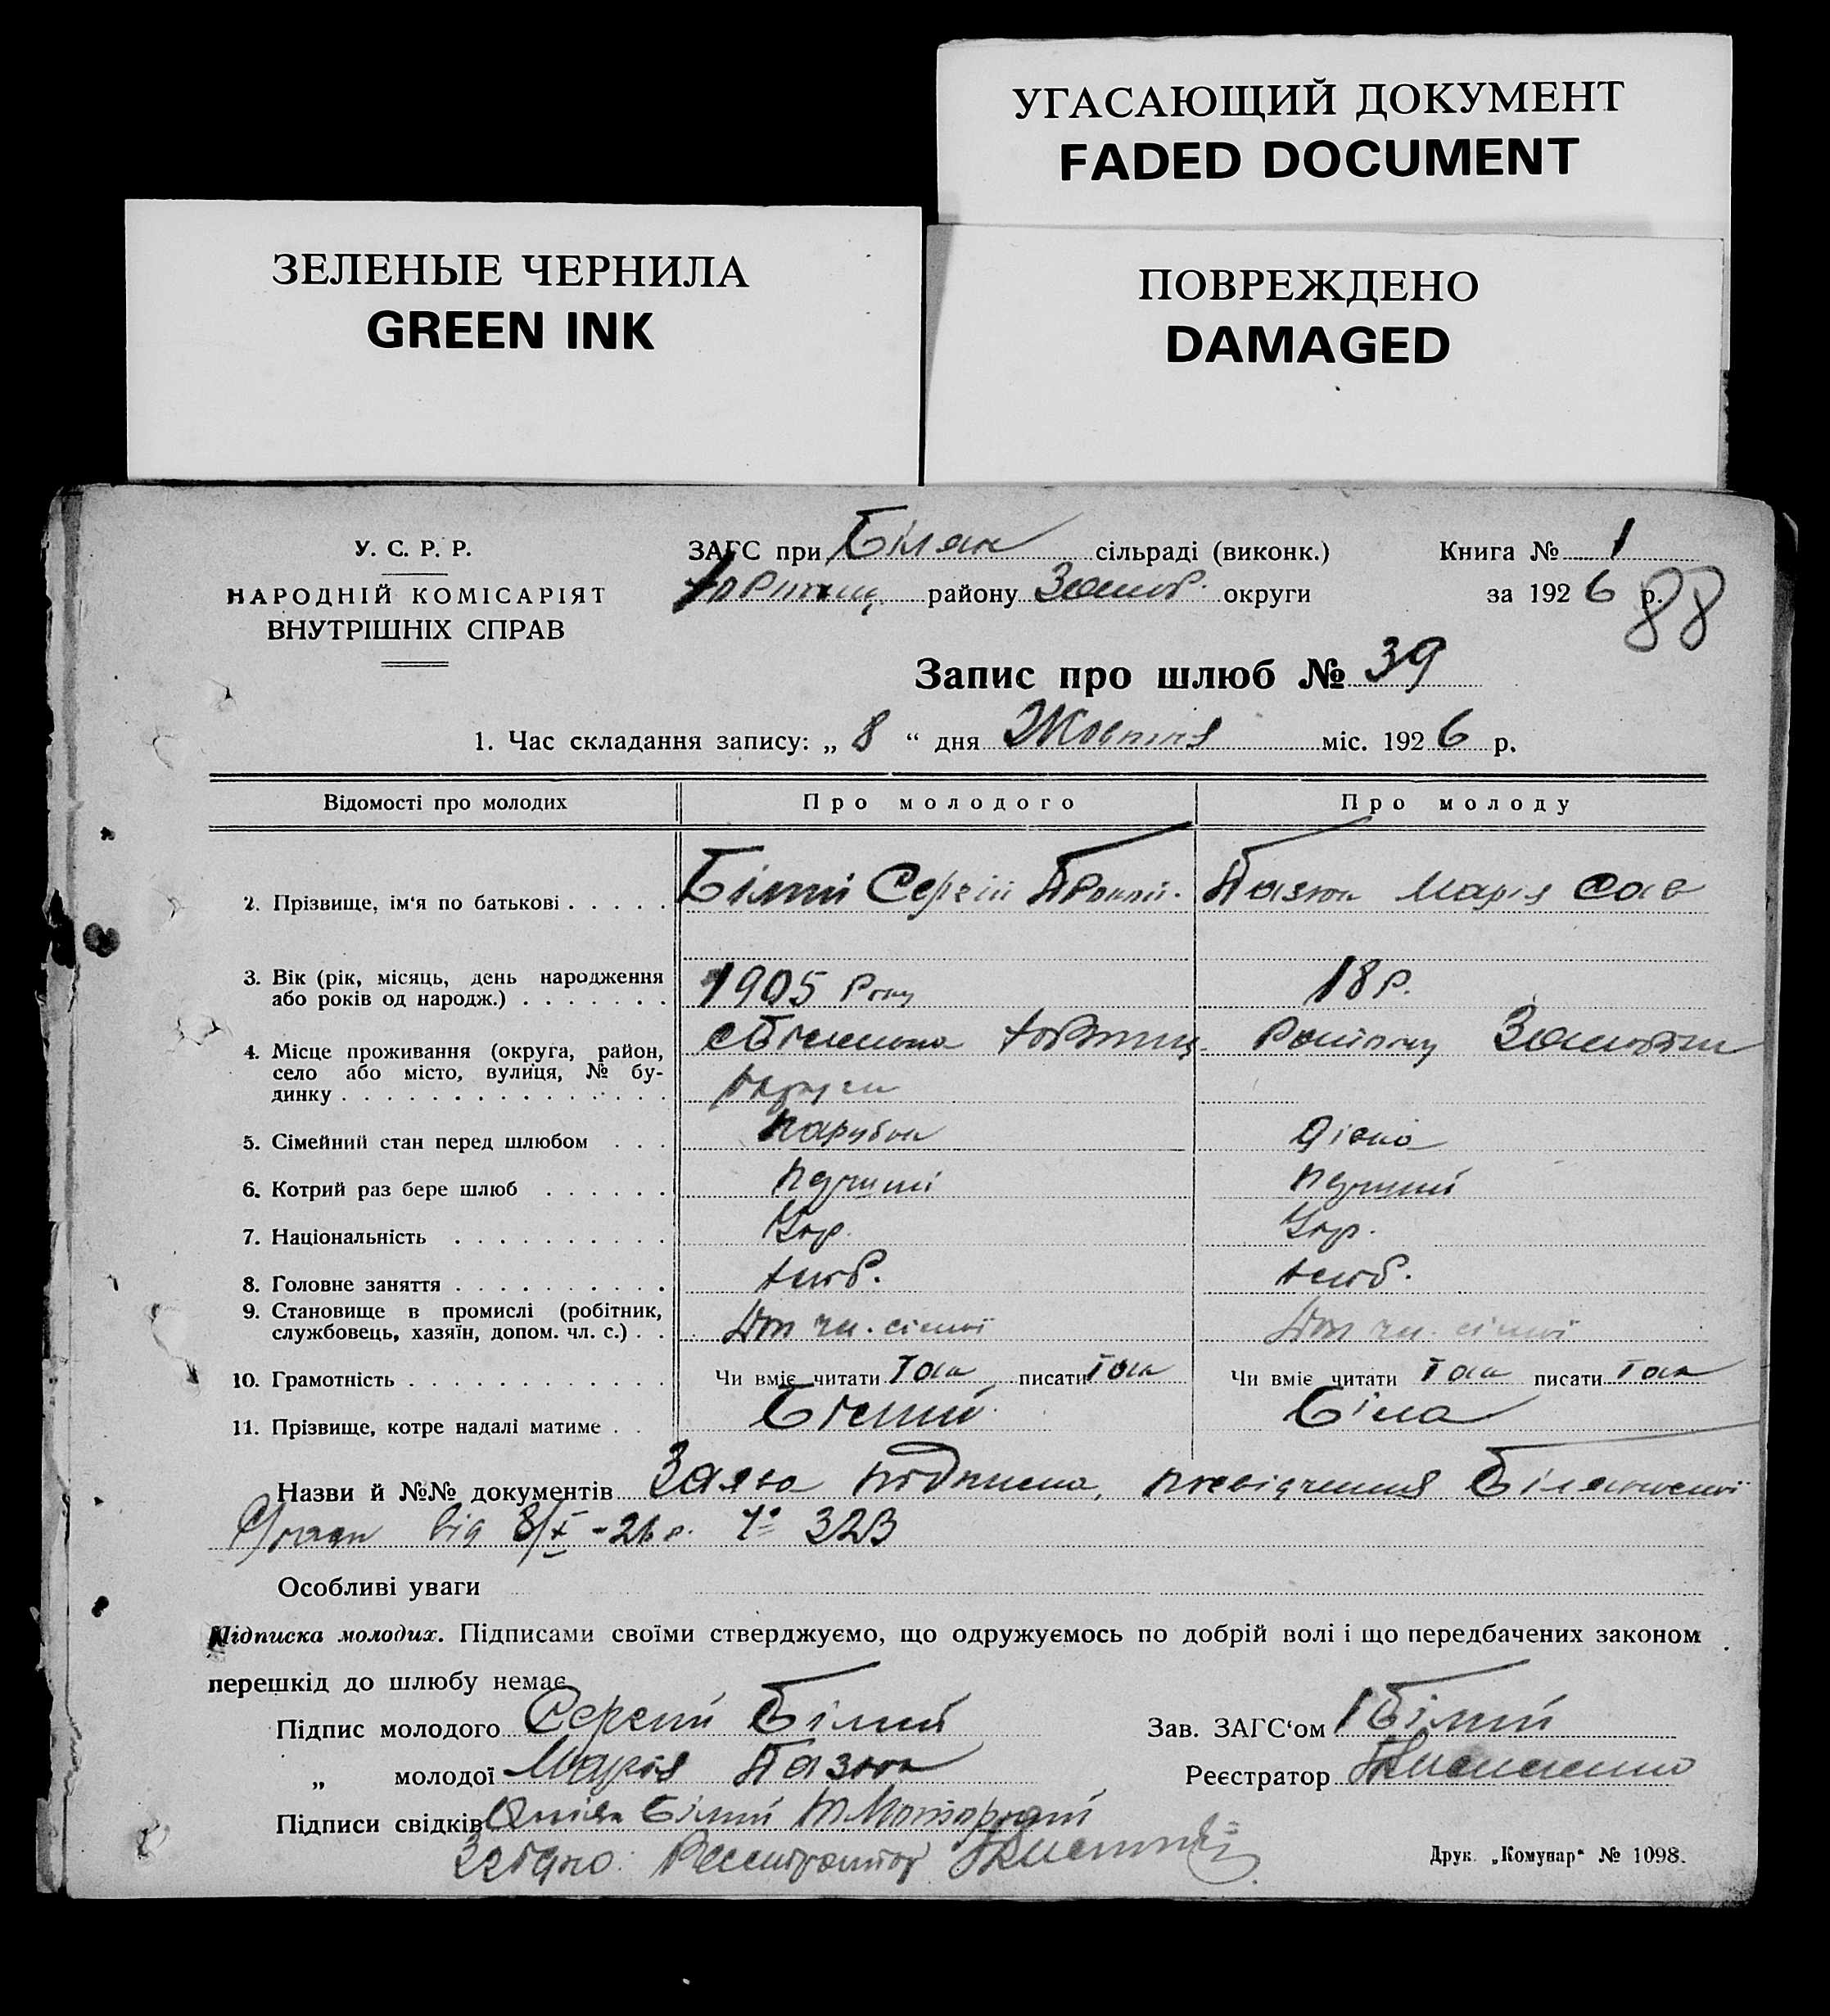 УГАСАЮЩИЙ ДОКУМЕНТ
FADED DOCUMENT
ЗЕЛЕНЫЕ ЧЕРНИЛА
GREEN INK
ПОВРЕЖДЕНО
DAMAGED
У. С. Р. Р.
НАРОДНІЙ КОМІСАРІЯТ
ВНУТРІШНІХ СПРАВ
ЗАГС при Білян сільраді (виконк.)
району Запор. округи
Книга № 1
за 1926 р.
88
Запис про шлюб № 39
1. Час складання запису: „ 8 “ дня Жовтня міс. 1926 р.
Відомості про молодих Про молодого Про молоду
2. Прізвище, ім‘я по батькові . . . . . Білий Сергій Пазюк Марія Сав
3. Вік (рік, місяць, день народження
або років од народж.) . . . . . . . 1905 року 18 р.
4. Місце проживання (округа, район,
село або місто, вулиця, № бу-
динку . . . . . . . . . . . . . . . . району
округи
5. Сімейний стан перед шлюбом . . . парубок дівка
6. Котрий раз бере шлюб . . . . . . перший перший
7. Національність . . . . . . . . . . Укр. Укр.
8. Головне заняття . . . . . . . . . . хліб. хліб.
9. Становище в промислі (робітник,
службовець, хазяїн, допом. чл. с.) . . Доп чл. сімї Доп чл. сімї
10. Грамотність . . . . . . . . . . . . Чи вміє читати Так писати Так Чи вміє читати Так писати Так
11. Прізвище, котре надалі матиме . . Білий Біла
Назви й №№ документів Заява подписка, посвідчення
С/ради від 8/X -26 р. № 323
Особливі уваги
Підписка молодих. Підписами своїми стверджуємо, що одружуємось по добрій волі і що передбачених законом
перешкід до шлюбу немає
Підпис молодого Сергій Білий
„ молодої Марія Пазюк
Підписи свідків Білий
Зав. ЗАГС‘ом Білий
Реєстратор
Згідно: Реєстратор
Друк. „Комунар“ № 1098.